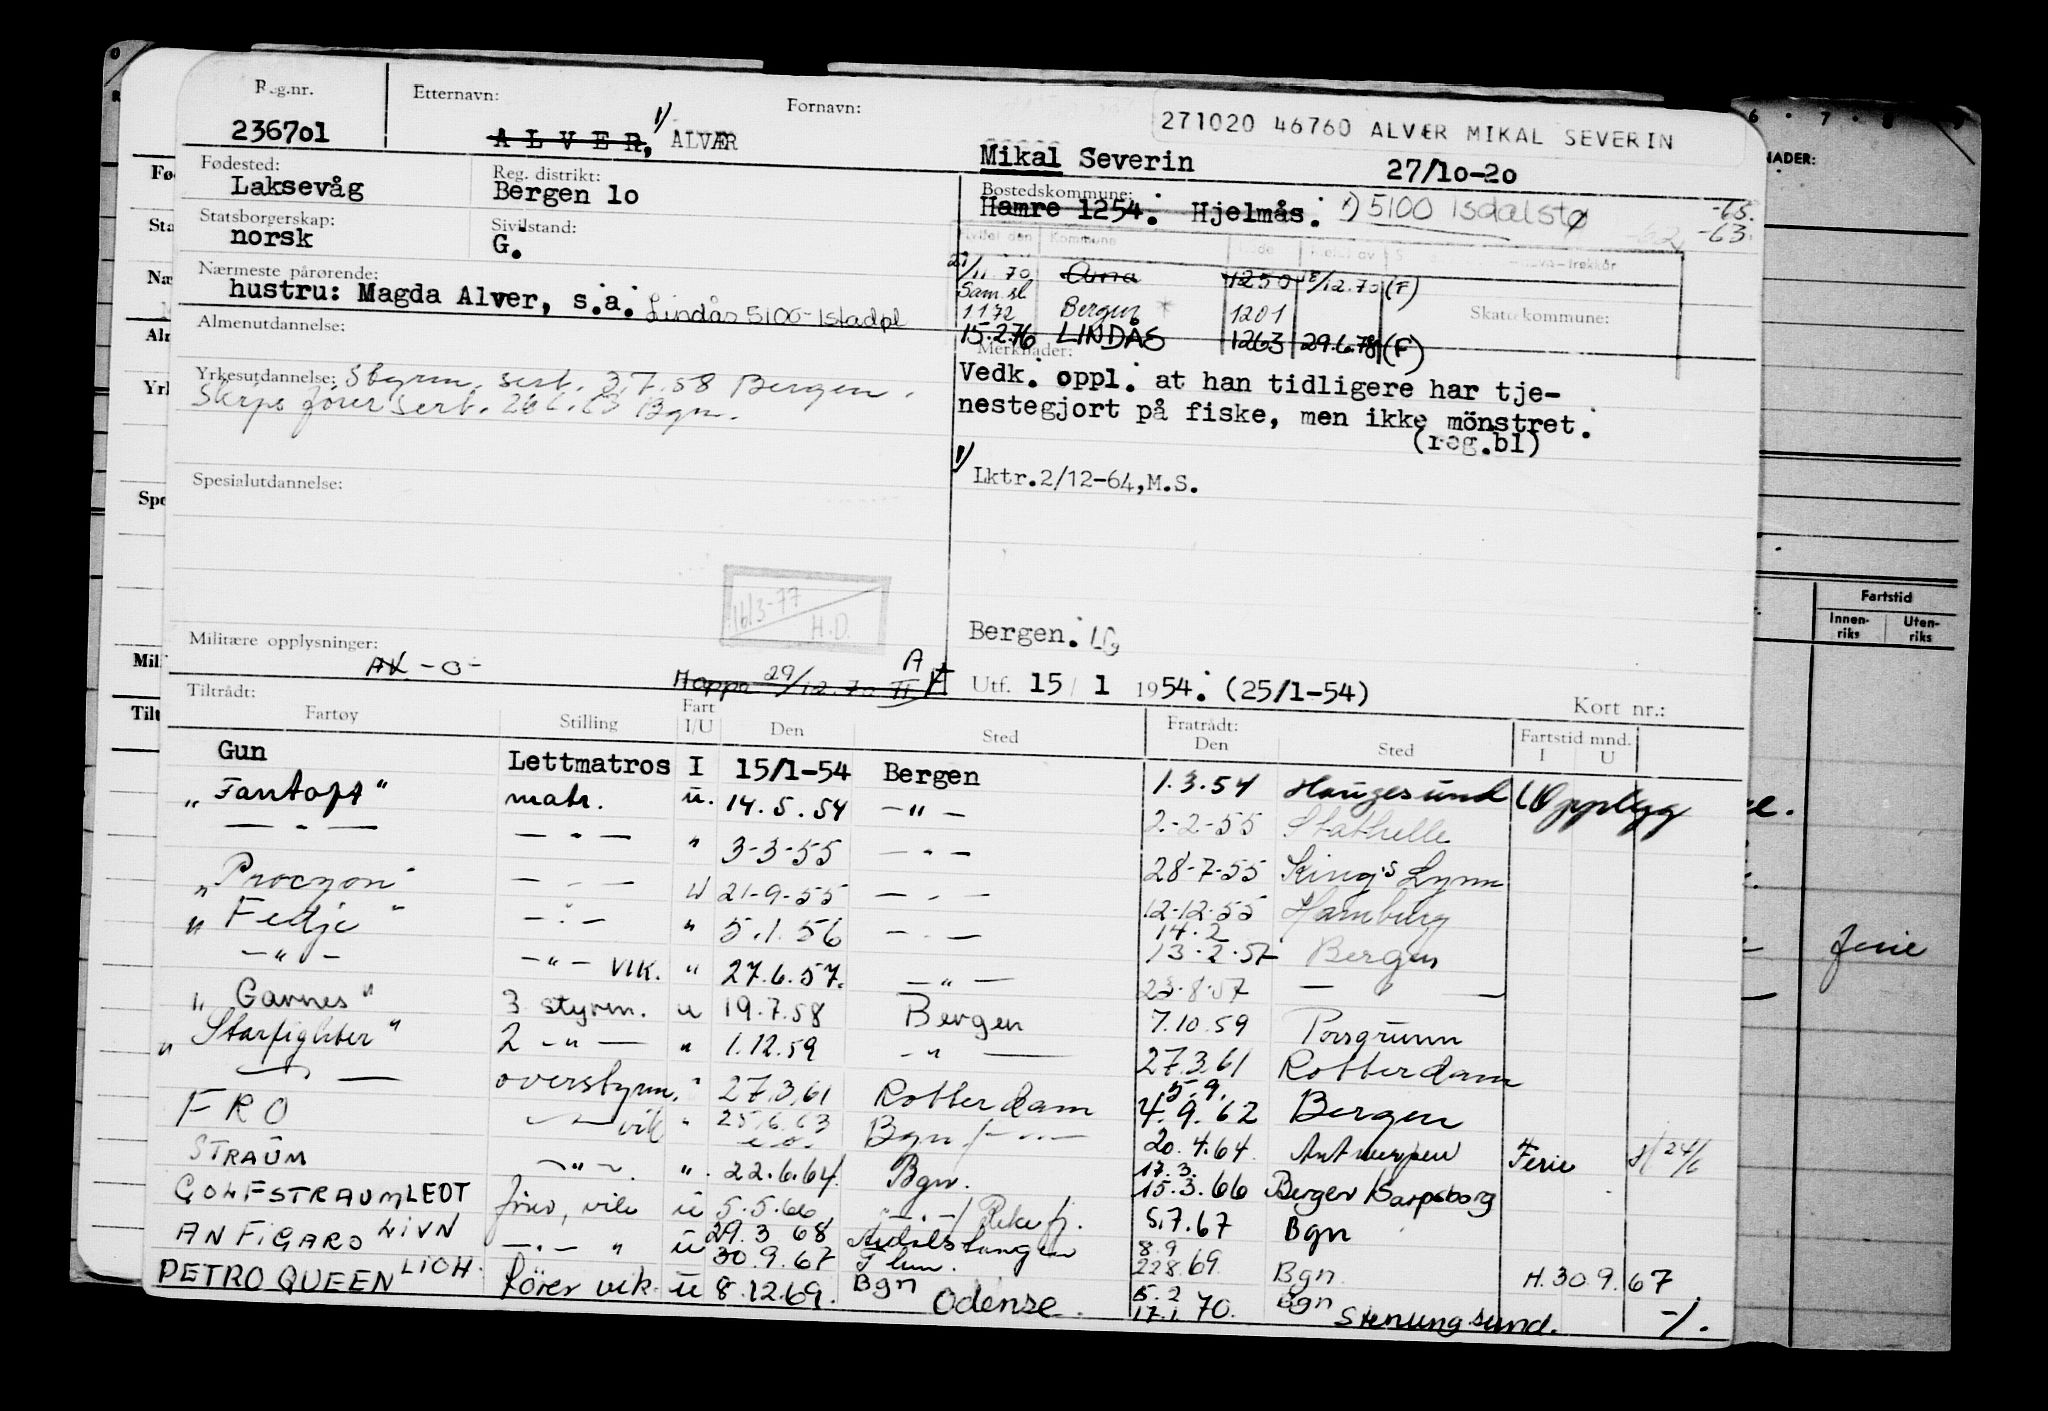 Reg.nr. Etternavn: Fornavn: 271020 46760 ALVÆR MIKAL SEVERIN
236701 A L V E R, 1/ ALVÆR Mikal Severin 27/10-20
Fødested: Reg. distrikt: Bostedskommune:
Laksevåg Bergen 10 Hamre 1254. Hjelmås. 1) 5100 Isdalstø -65.
Statsborgerskap: Sivilstand: -63.
norsk G. Kommune
Nærmeste pårørende: 11.70 Arna 1250 /12.70 (F)
hustru: Magda Alver, s.a. Lindås 5100-Isdalstø Sam.sl 1.1 72 Bergen 1201 Skattekommune:
Almenutdannelse: 15.2.76 LINDÅS 1263 29.6.78 (F)
Merknader:
Yrkesutdannelse: Styrm. sert. 3.7.58 Bergen.
Skpsfører sert. Bgn.
Vedk. oppl. at han tidligere har tje-
nestegjort på fiske, men ikke mönstret.
(reg.bl)
1/ Lktr.2/12-64,M.S.
Spesialutdannelse:
16/3-77 H.D.
Militære opplysninger: Bergen.
-0- 29/12.70 A Utf. 15/1 1954. (25/1-54)
Kort nr.:
Tiltrådt: Fratrådt:
Fartøy Stilling Fart I/U Den Sted Den Sted Fartstid mnd. I U
Gun Lettmatros I 15/1-54 Bergen 1.3.54 Haugesund Opplegg
"Fantoft" matr. u. 14.5.54 -"- 2-2-55 Stathelle
-"- -"- " 3-3-55 -"- 28-7-55 King's Lynn
"Procyon" -"- U 21-9-55 -"- 12-12-55 Hamburg
"Fedje" -"- " 5.1.56 -"- 14.2 13.2.57 Bergen
-"- -"- VIK. " 27.6.57. -"- 23.8.57 -"-
"Garnes" 3 styrm. u 19.7.58 Bergen 7.10.59 Porsgrunn
"Starfighter" 2 -"- " 1.12.59 -"- 27.3.61 Rotterdam
-"- overstyrm. " 27.3.61 Rotterdam 5.9. 4.9.62 Bergen
FRO -"- vik " 25.6.63 Bgn 20.4.64. Antwerpen Ferie 24/6
STRAUM -"- ". 22.6.64. Bgn. 17.3. 15.3.66 Bergen/Sarpsborg
GOLFSTRAUM LEDT vik u 5.5.66 -"-/Rekefj. 5.7.67 Bgn
ANFIGARO LIVN -"- " u 29.3 68 30.9.67 Årdalstangen 8.9 22 8.69. Bgn. H.30.9.67.
PETRO QUEEN LIOH. förer vik. u 8.12.69. Bgn Odense. 5.2 17.1.70. Bgn Stenungsund. -/.
Fartstid
Innenriks Utenriks
ferie